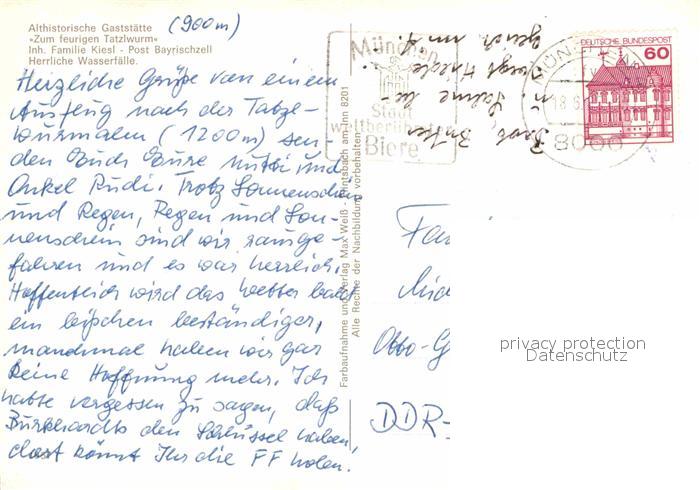 Althistorische Gaststätte
»Zum feurigen Tatzlwurm«
Inh. Familie Kiesl - Post Bayrischzell
Herrliche Wasserfälle.
(900m)
Herzliche Grüße von einem
Ausflug nach der Tatze-
wurmalm (1200m) sen-
den Euch Eure Mutti und
Onkel Rudi. Trotz Sonnenschein
und Regen, Regen und Son-
nenschein sind wir raufge-
fahren und es war herrlich.
Hoffentlich wird das Wetter bald
ein bißchen beständiger,
manchmal haben wir gar
keine Hoffnung mehr. Ich
hatte vergessen zu sagen, daß
Burkhardts den Schlüssel haben,
dort könnt Ihr die FF holen.
Farbaufnahme und Verlag Max Weiß - Flintsbach am Inn 8201
Alle Rechte der Nachbildung vorbehalten
München
Stadt
weltberühmter
Biere
8000
DEUTSCHE BUNDESPOST
60
Otto-G
DDR-
privacy protection
Datenschutz